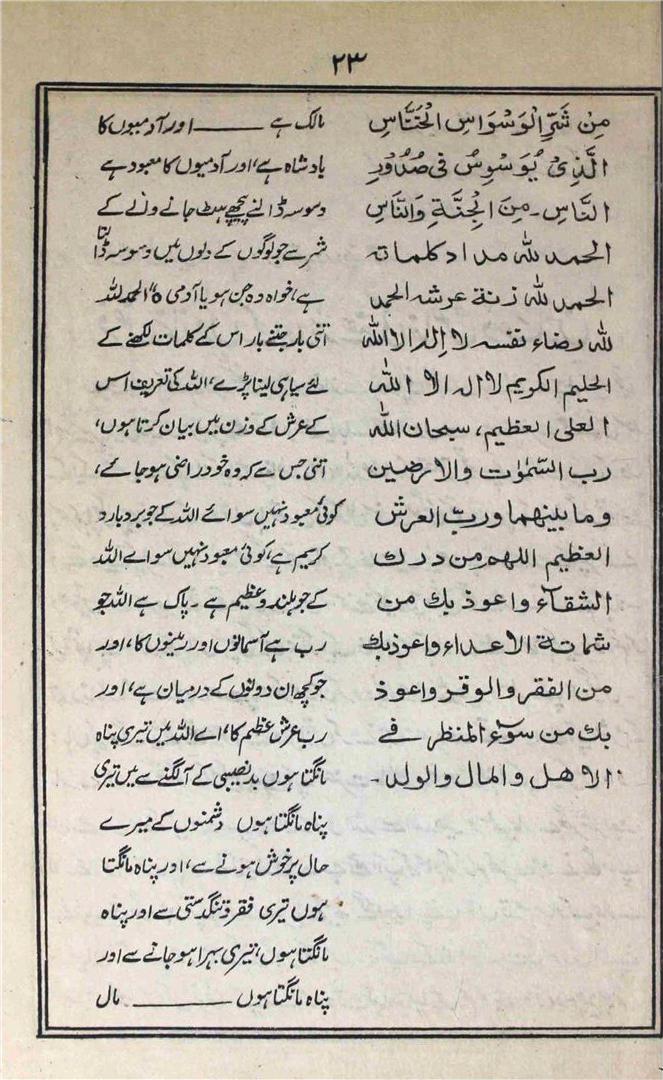 ۲۳
مِنْ شَرِّ الْوَسْوَاسِ الْخَنَّاسِ
الَّذِیْ یُوَسْوِسُ فِیْ صُدُوْرِ
النَّاسِ۔ مِنَ الْجِنَّةِ وَالنَّاسِ
الحمد للہ مداد کلماتہ
الحمد للہ زنة عرشہ الحمد
للہ رضاء نفسہ لا إلٰہ الا اللہ
الحلیم الکریم لا الہ الا اللہ
العلی العظیم، سبحان اللہ
رب السّمٰوٰت والارضین
وما بینهما وربّ العرش
العظیم اللهم من درك
الشقاء واعوذ بك من
شماتة الاعداء واعوذ بك
من الفقر والوقر واعوذ
بك من سوء المنظر فے
الاهل والمال والولد۔
مالک ہے ــــــــ اور آدمیوں کا
بادشاہ ہے، اور آدمیوں کا معبود ہے
وسوسہ ڈالنے پیچھے ہٹ جانے والے کے
شر سے جو لوگوں کے دلوں میں وسوسہ ڈالتا
ہے، خواہ وہ جن ہو یا آدمی ہ" الحمد للہ
اتنی بار جتنے بار اس کے کلمات لکھنے کے
لئے سیاہی لینا پڑے، اللہ کی تعریف اس
کے عرش کے وزن میں بیان کرتا ہوں،
اتنی جس سے کہ وہ خود راضی ہو جائے،
کوئی معبود نہیں سوائے اللہ کے جو بردبار و
کریم ہے، کوئی معبود نہیں سواے اللہ
کے جو بلند و عظیم ہے ۔ پاک ہے اللہ جو
رب ہے آسمانوں اور زمینوں کا، اور
جو کچھ ان دونوں کے درمیان ہے، اور
رب عرش عظیم کا، اے اللہ میں تیری پناہ
مانگتا ہوں بدنصیبی کے آلگنے سے میں تیری
پناہ مانگتا ہوں دشمنوں کے میرے
حال پر خوش ہونے سے، اور پناہ مانگتا
ہوں تیری فقر و تنگدستی سے اور پناہ
مانگتا ہوں، تیری بہرا ہو جانے سے اور
پناہ مانگتا ہوں ــــــــ مال